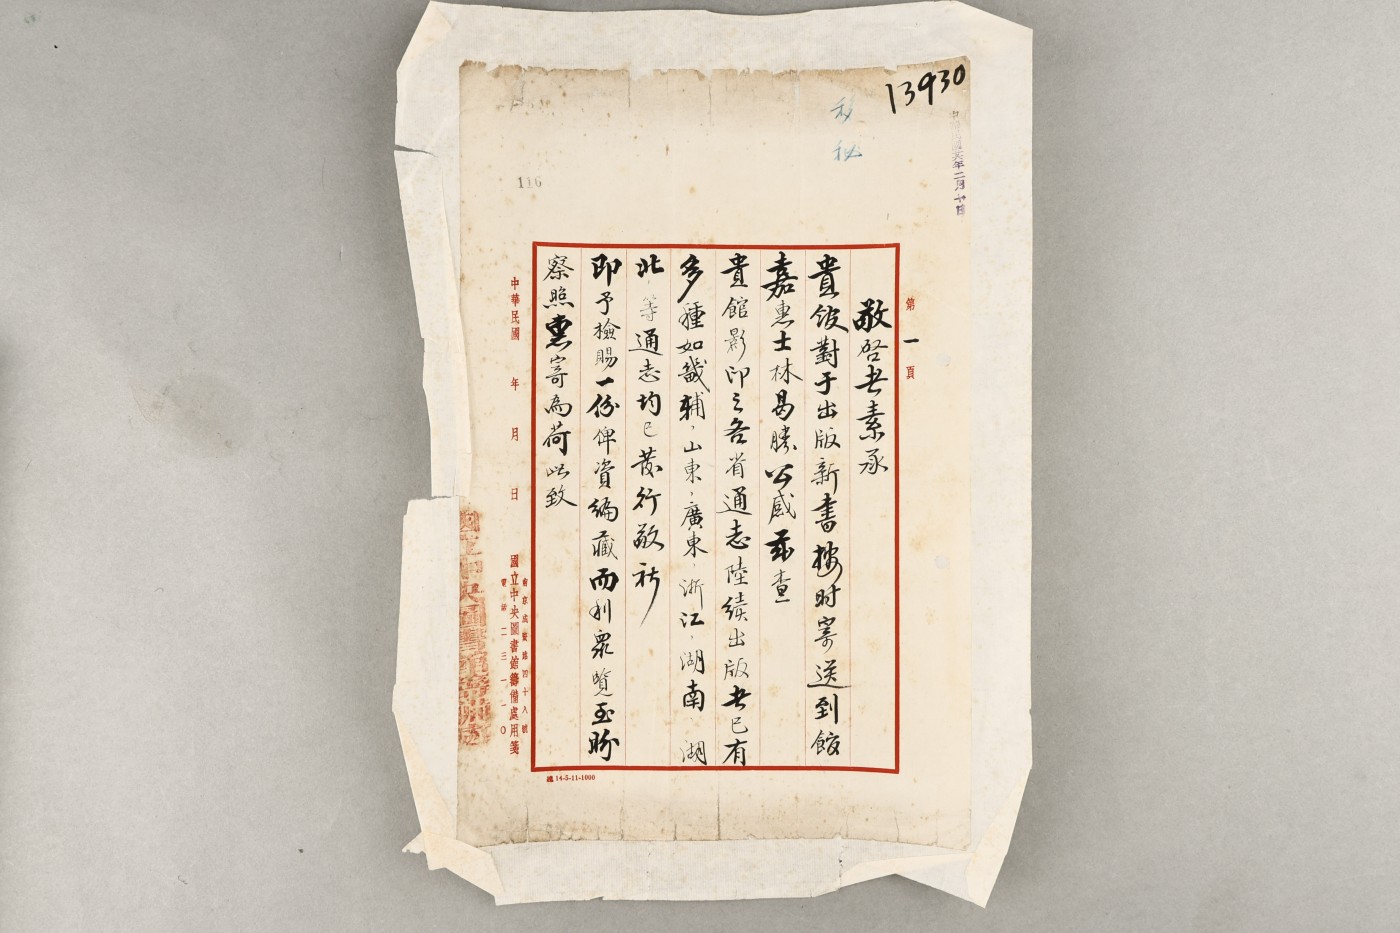 13930
秘
116
第一頁
敬啓者素承
貴館對于出版新書按时寄送到館
嘉惠士林曷勝公感茲查
貴館影印之各省通志陸續出版者已有
多種如畿輔、山東、廣東、浙江、湖南 湖
北、等通志均已發行敬祈
即予檢賜一份俾資編藏而利衆覽至盼
察照惠寄爲荷此致
中華民國 年 月 日
國立中央圖書館籌備處用箋
南京成賢路四十八號
電話二三一一〇
總 14-5-11-1000